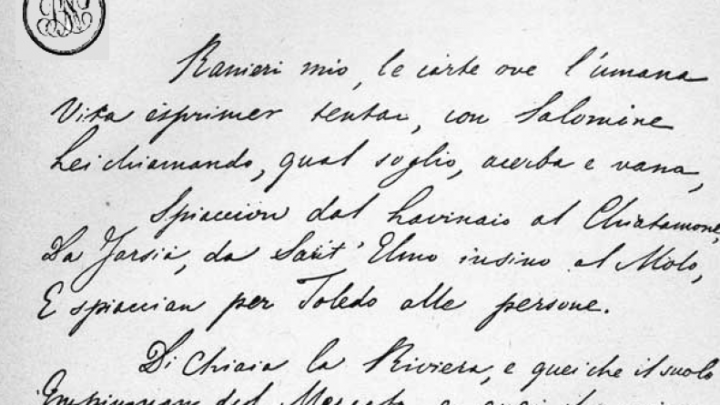 Ranieri mio, le carte ove l'umana
Vita esprimer tentai, con Salomone
Lei chiamando, qual soglio, acerba e vana,
Spiaccion dal Lavinaio al Chiatamone,
Da Tarsia, da Sant'Elmo insino al Molo,
E spiaccian per Toledo alle persone.
Di Chiaia la Riviera, e quei che il suolo
del Mercato